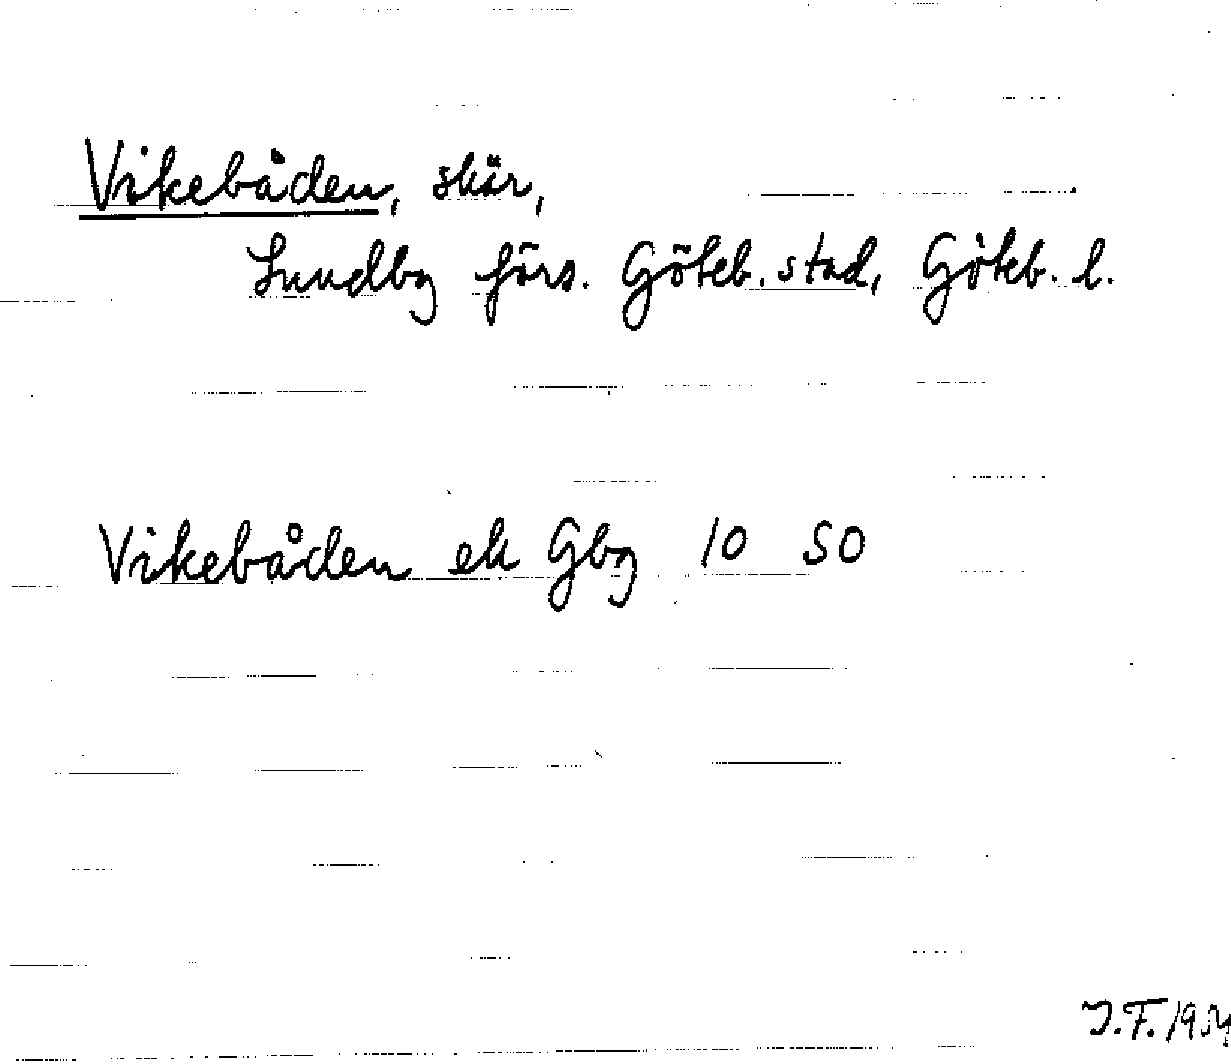 Vikebåden, skär,
Lundby förs. Göteb. stad, Göteb. l.
Vikebåden ek Gbg 10 SO
J.F. 1954